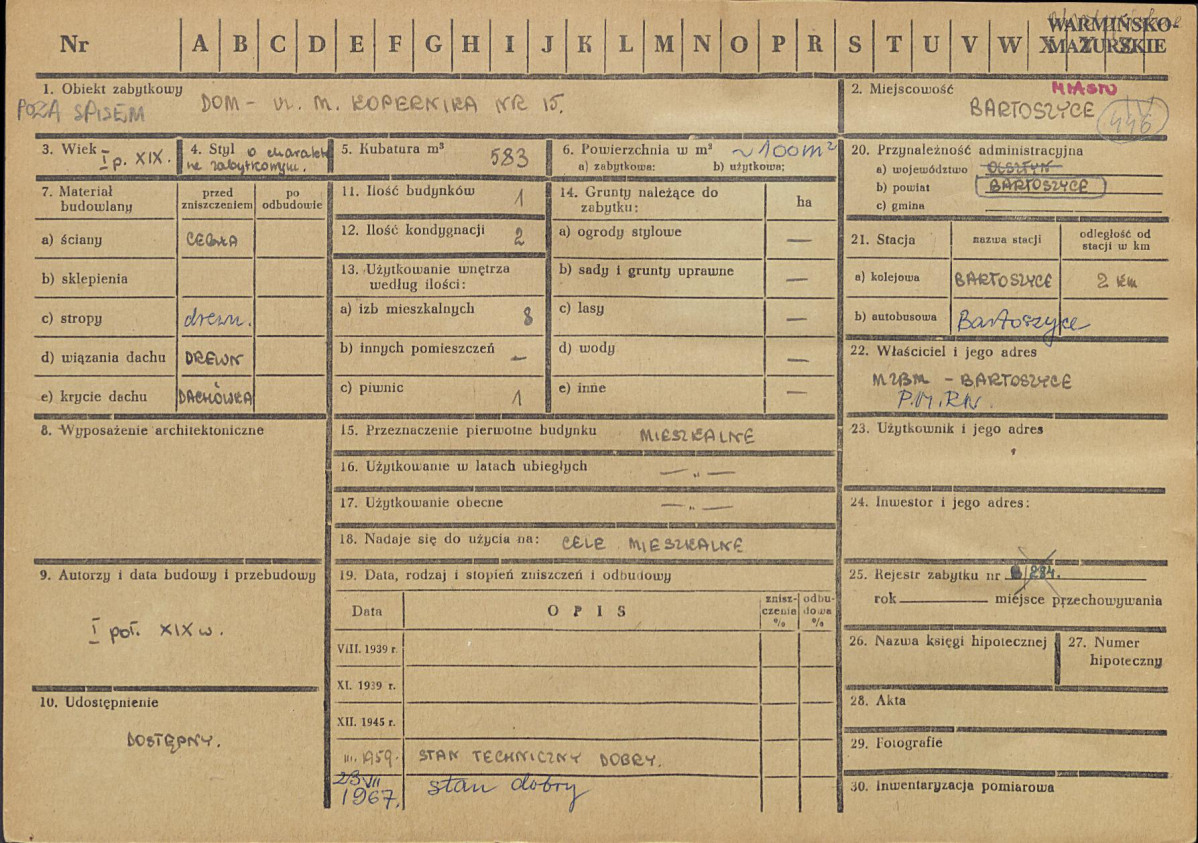 Nr A B C D E F G H I J K L M N O P R S T U V W X Y Z Ż
WARMIŃSKO-
MAZURSKIE
1. Obiekt zabytkowy
POZA SPISEM
DOM - UL. M. KOPERNIKA NR 15.
2. Miejscowość
MIASTO
BARTOSZYCE
446
3. Wiek I p. XIX.
4. Styl o charakte
rze zabytkowym.
5. Kubatura m³
583
6. Powierzchnia w m² ~100m²
a) zabytkowa: b) użytkowa:
7. Materiał
budowlany
przed
zniszczeniem
po
odbudowie
a) ściany CEGŁA
b) sklepienia
c) stropy drewn.
d) wiązania dachu DREWN
e) krycie dachu DACHÓWKA
8. Wyposażenie architektoniczne
9. Autorzy i data budowy i przebudowy
I poł. XIX w.
10. Udostępnienie
DOSTĘPNY.
11. Ilość budynków 1
12. Ilość kondygnacji 2
13. Użytkowanie wnętrza
według ilości:
a) izb mieszkalnych 8
b) innych pomieszczeń —
c) piwnic 1
14. Grunty należące do
zabytku:
ha
a) ogrody stylowe —
b) sady i grunty uprawne —
c) lasy —
d) wody —
e) inne —
15. Przeznaczenie pierwotne budynku MIESZKALNE
16. Użytkowanie w latach ubiegłych — „ —
17. Użytkowanie obecne — „ —
18. Nadaje się do użycia na: CELE MIESZKALNE
19. Data, rodzaj i stopień zniszczeń i odbudowy
Data
OPIS
znisz-
czenia
%
odbu-
dowa
%
VIII. 1939 r.
XI. 1939 r.
XII. 1945 r.
III. 1959. STAN TECHNICZNY DOBRY.
23 VII
1967. stan dobry
20. Przynależność administracyjna
a) województwo OLSZTYN
b) powiat BARTOSZYCE
c) gmina
21. Stacja
nazwa stacji
odległość od
stacji w km
a) kolejowa BARTOSZYCE 2 km
b) autobusowa Bartoszyce
22. Właściciel i jego adres
MZBM - BARTOSZYCE
P.M.RN.
23. Użytkownik i jego adres
24. Inwestor i jego adres:
25. Rejestr zabytku nr B/284.
rok miejsce przechowywania
26. Nazwa księgi hipotecznej
27. Numer
hipoteczny
28. Akta
29. Fotografie
30. Inwentaryzacja pomiarowa